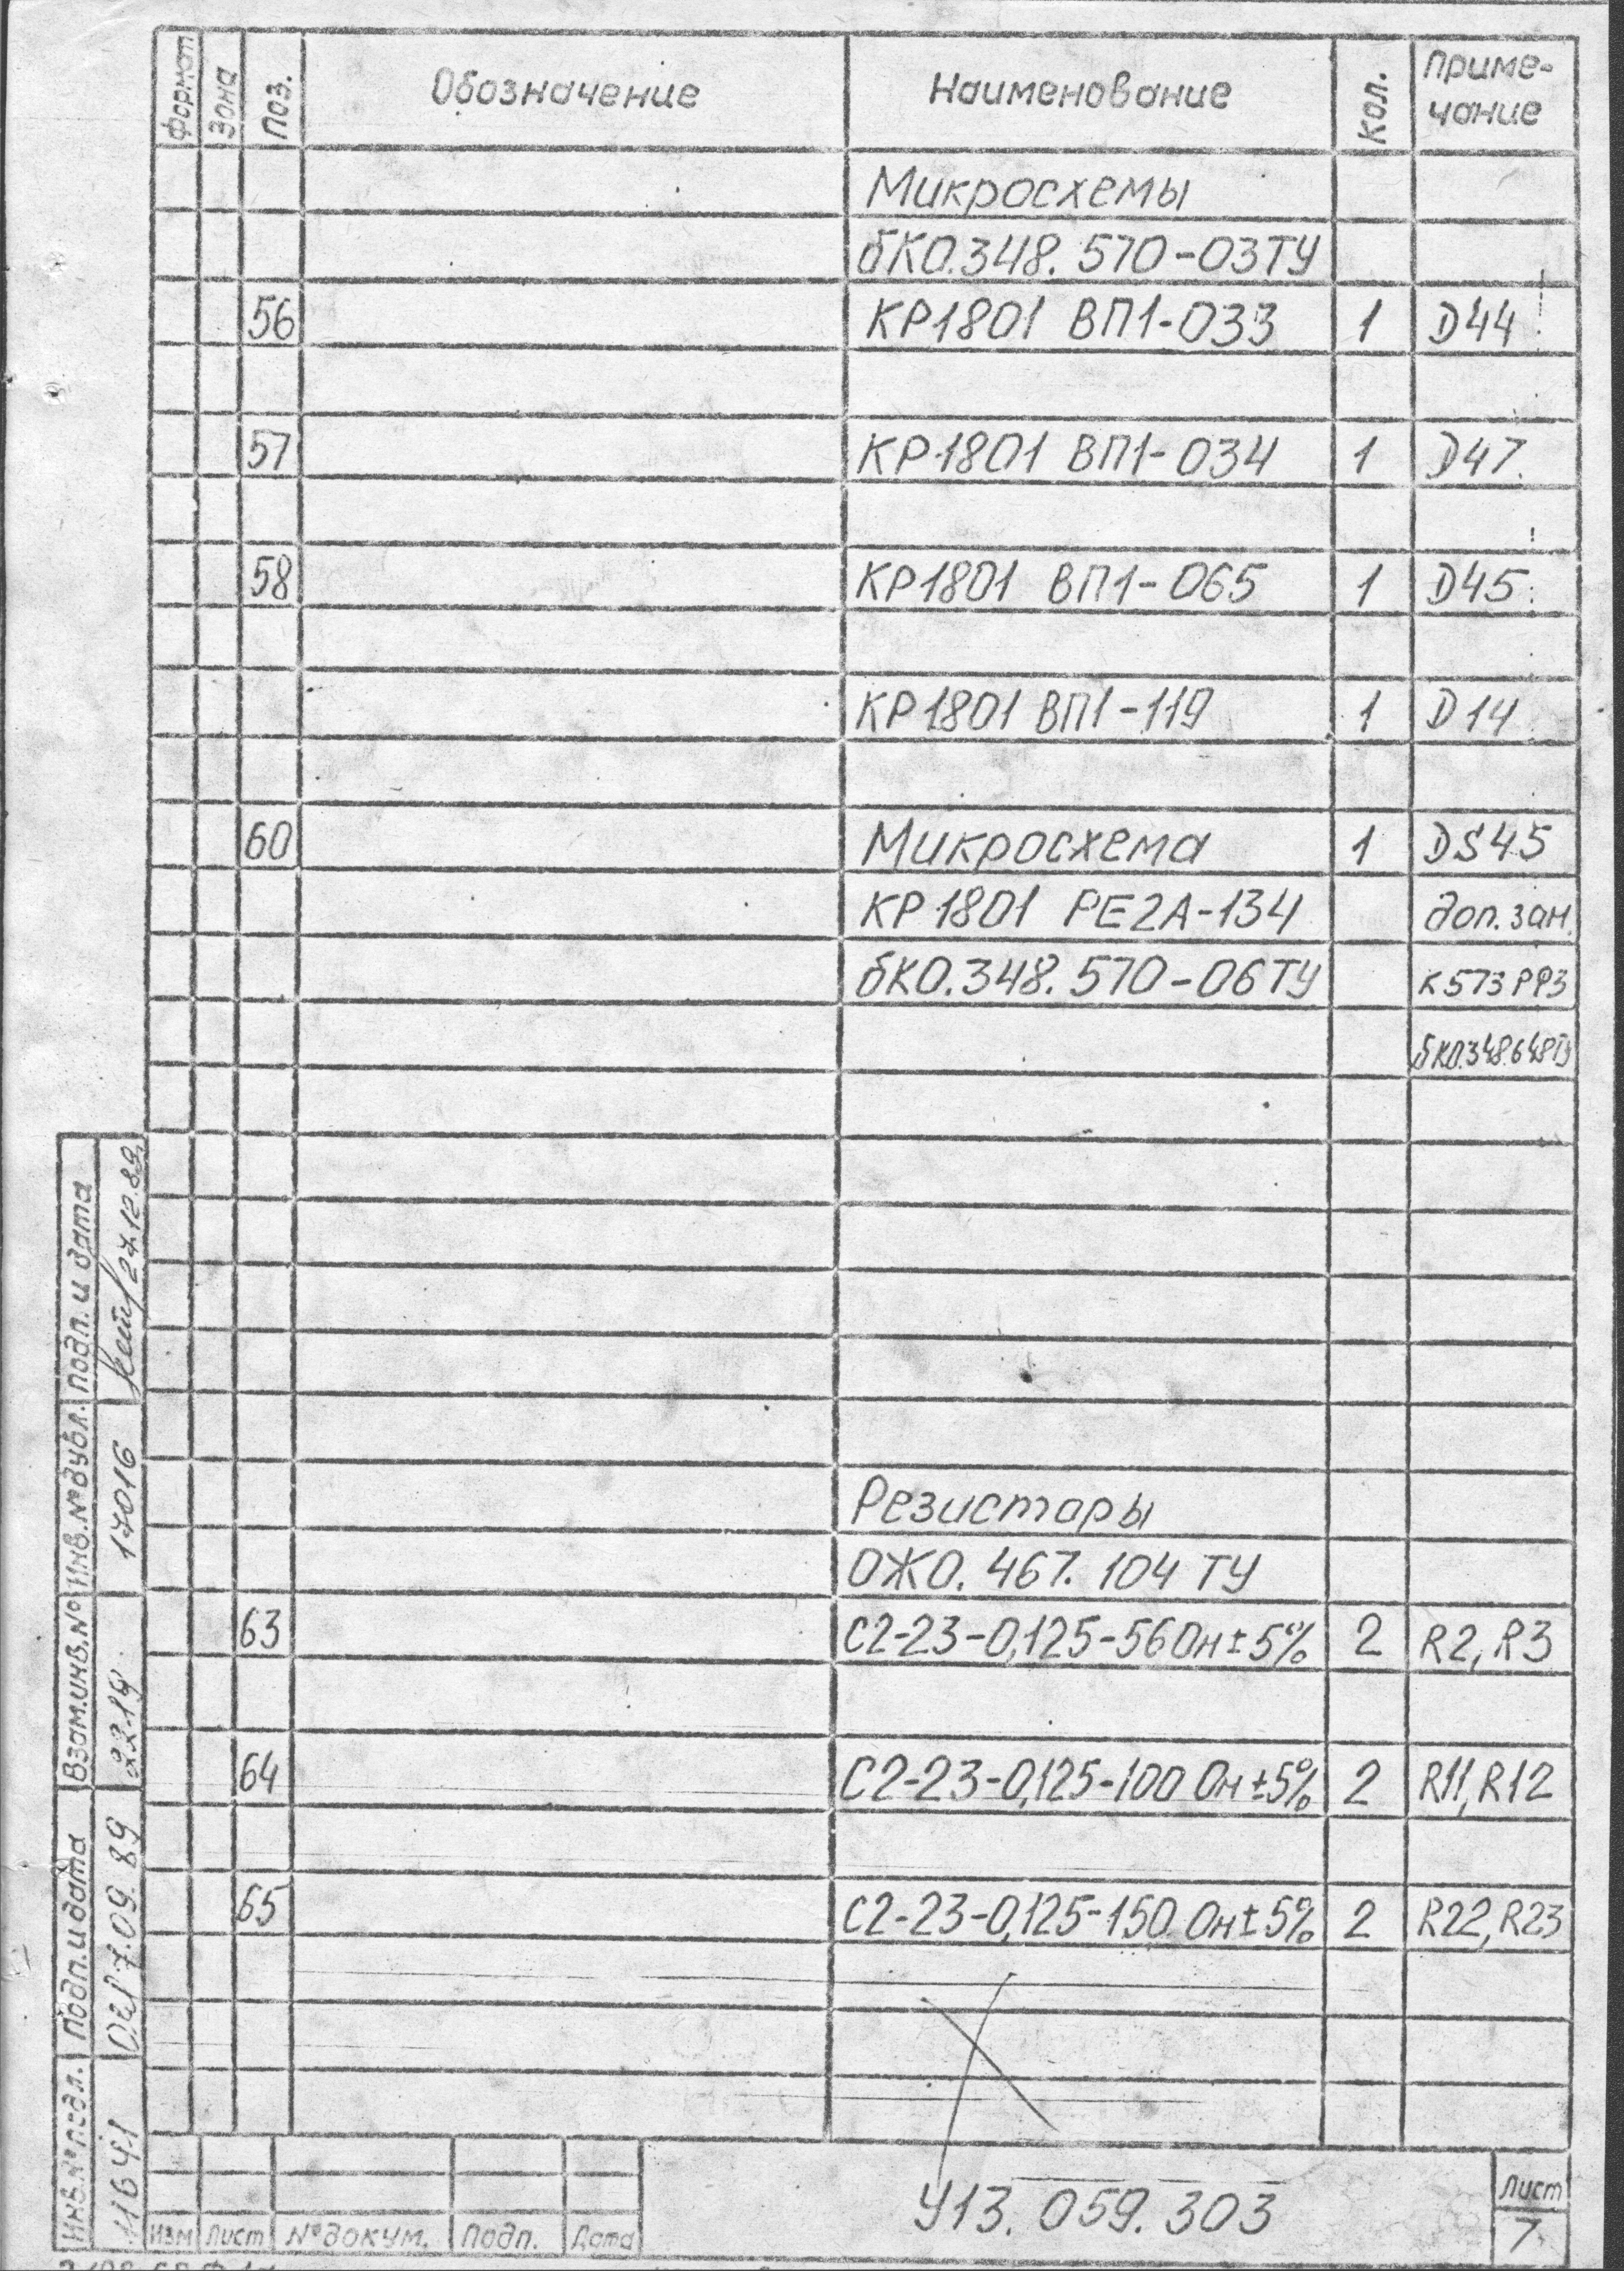 Формат Зона Поз. Обозначение Наименование Кол. Приме-
чание
Микросхемы
бК0.348.570-03ТУ
56 КР1801 ВП1-033 1 D44
57 КР1801 ВП1-034 1 D47.
58 КР1801 ВП1-065 1 D45
КР1801 ВП1-119 1 D14
60 Микросхема 1 DS45
КР1801 РЕ2А-134 доп. зам.
бК0.348.570-06ТУ К573РФ3
бК0.348.648ТУ
Резисторы
ОЖ0.467.104 ТУ
63 С2-23-0,125-56 Ом±5% 2 R2, R3
64 С2-23-0,125-100 Ом±5% 2 R11, R12
65 С2-23-0,125-150 Ом±5% 2 R22, R23
Подп. и дата
27.12.89
Инв.№дубл.
17016
Взам.инв.№
2219
Подп. и дата
17.09.89
Инв.№подл.
Изм Лист №докум. Подп. Дата
У13.059.303
Лист
7